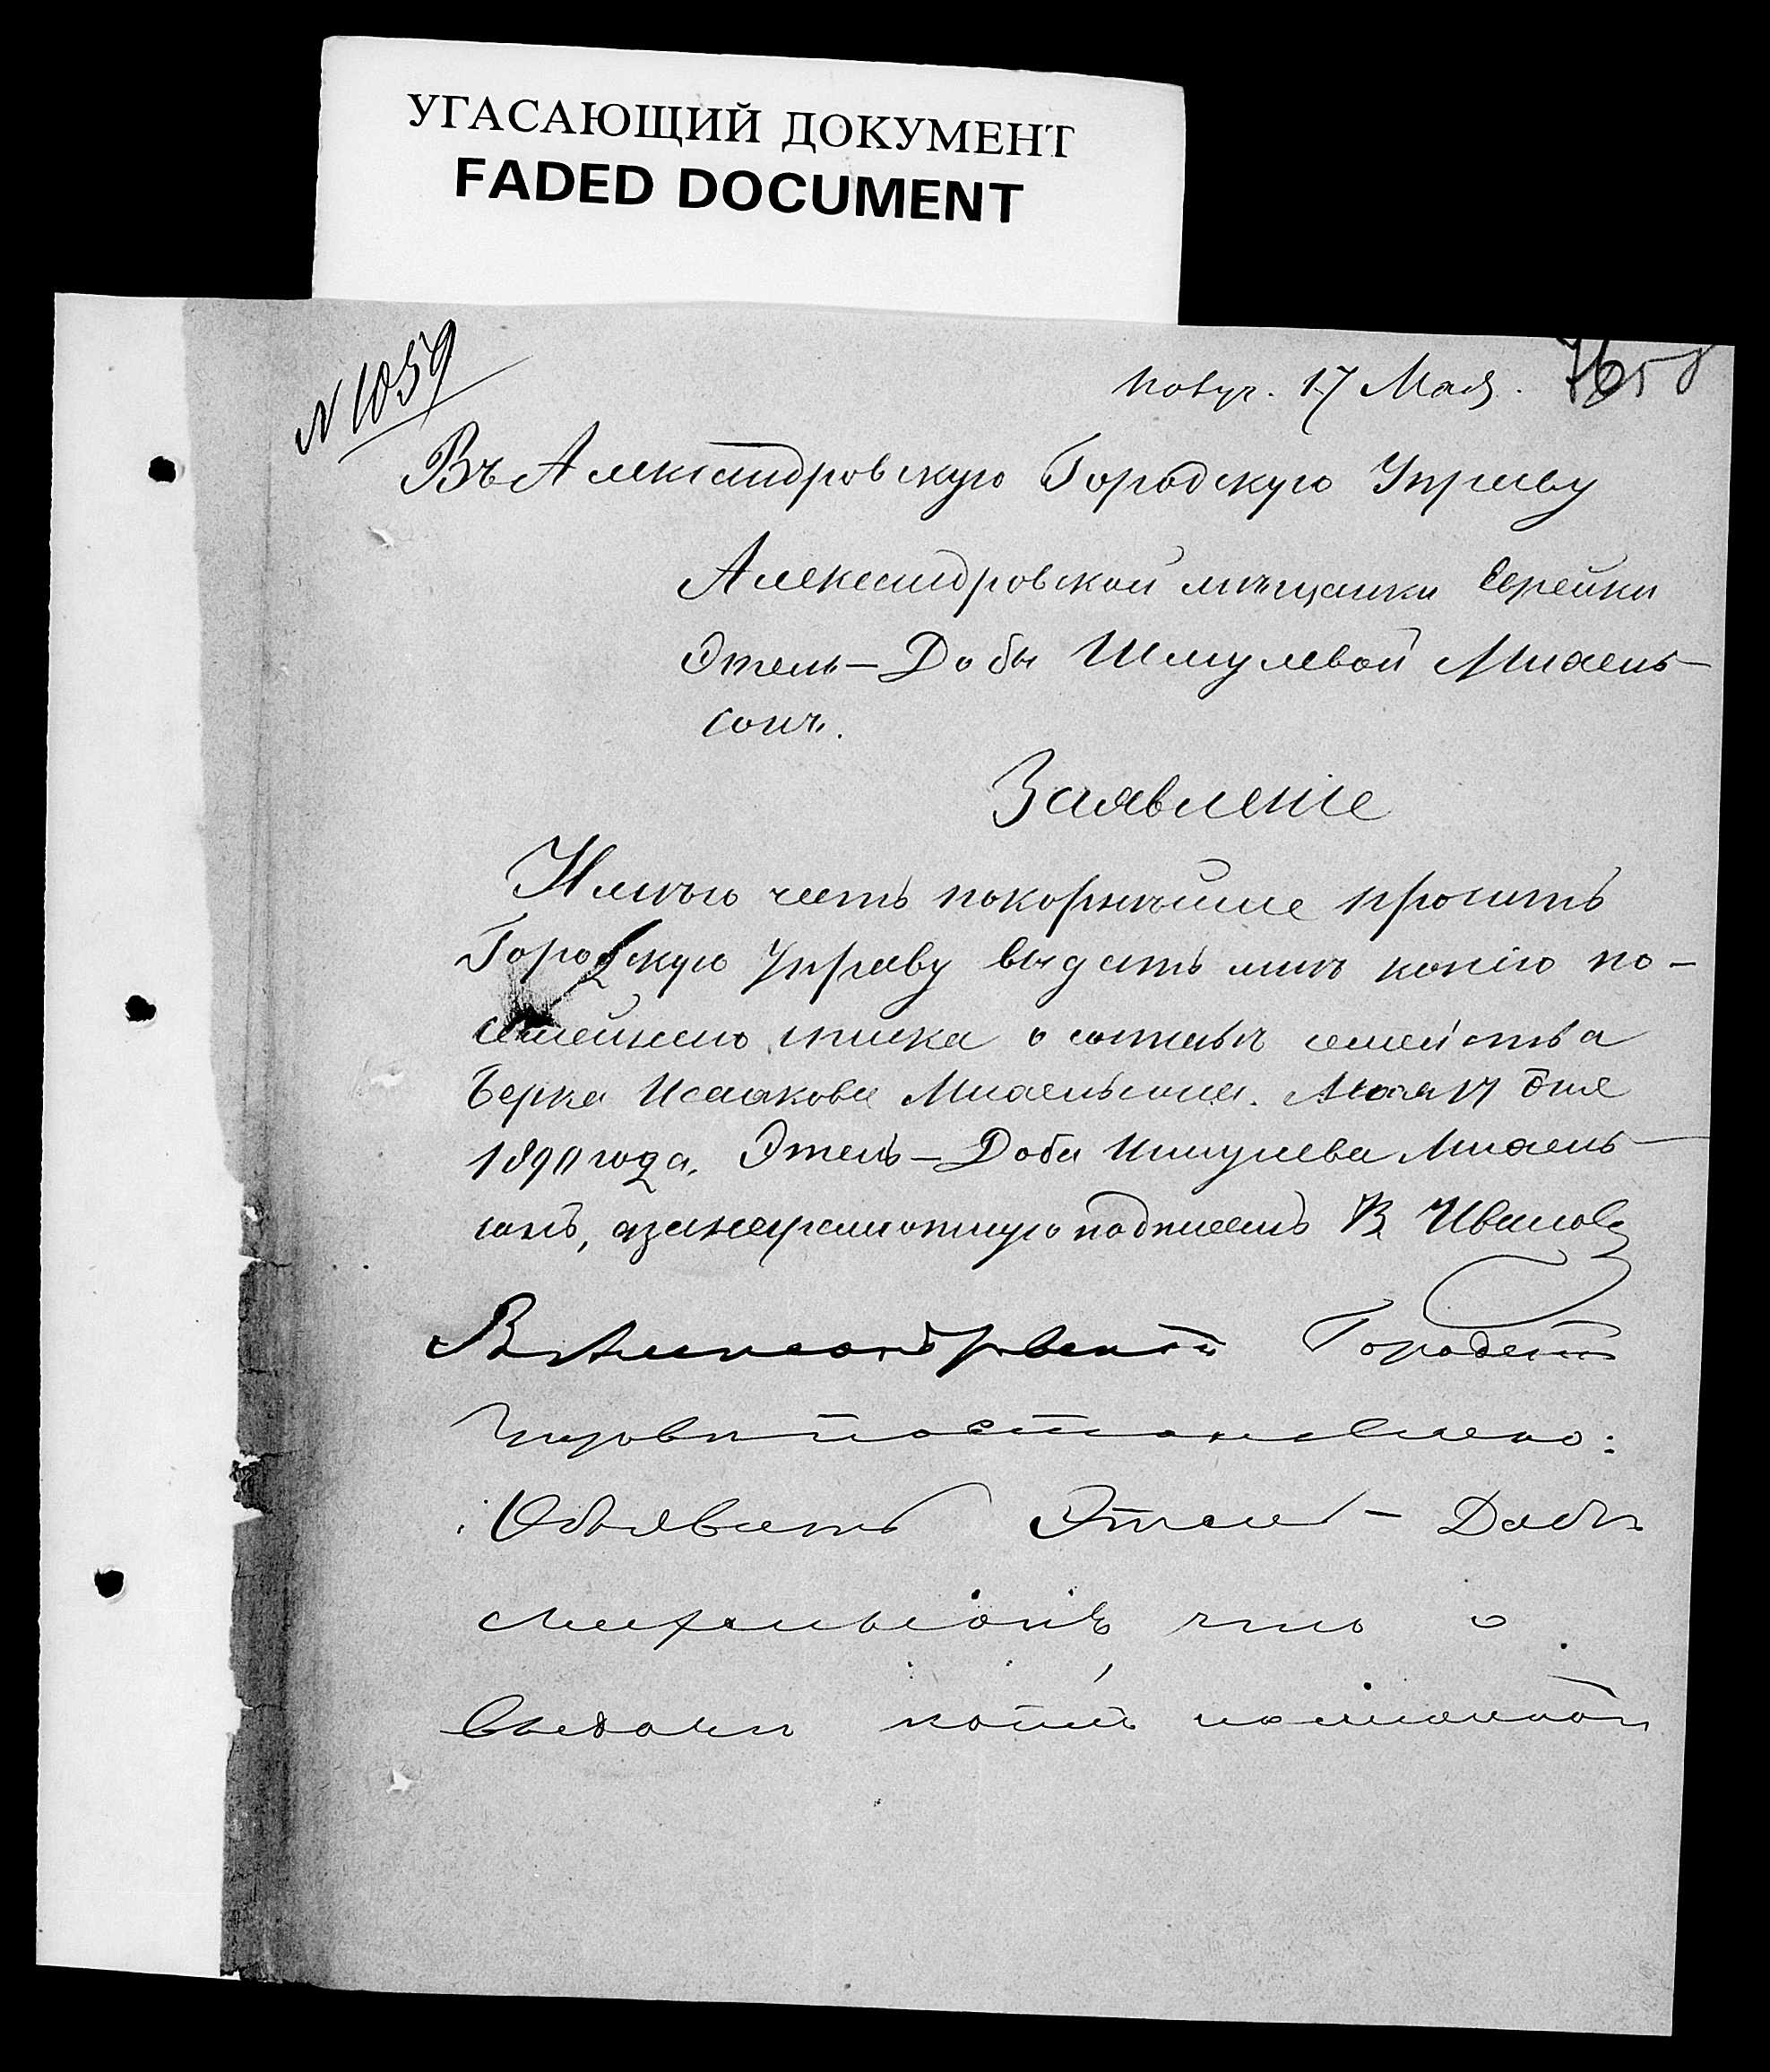 УГАСАЮЩИЙ ДОКУМЕНТ
FADED DOCUMENT
N 1059
Получ. 17 Мая. 76
Въ Александровскую Городскую Управу
Александровской мѣщанки Еврейки
Этель-Добы Шмулевой Михель-
сонъ.
Заявленіе
Имѣю честь покорнѣйше просить
Городскую Управу выдать мнѣ копію по-
семейнаго списка о составѣ семейства
Берка Исаакова Михельсона. Мая 17 дня
1890 года. Этель-Доба Шмулева Михель-
сонъ, а за неграмотную подписалъ В Ивановъ
В Александровской Городской
Управѣ постановлено:
Объявить Этель-Добѣ
Михельсонъ что о
выдачи копіи